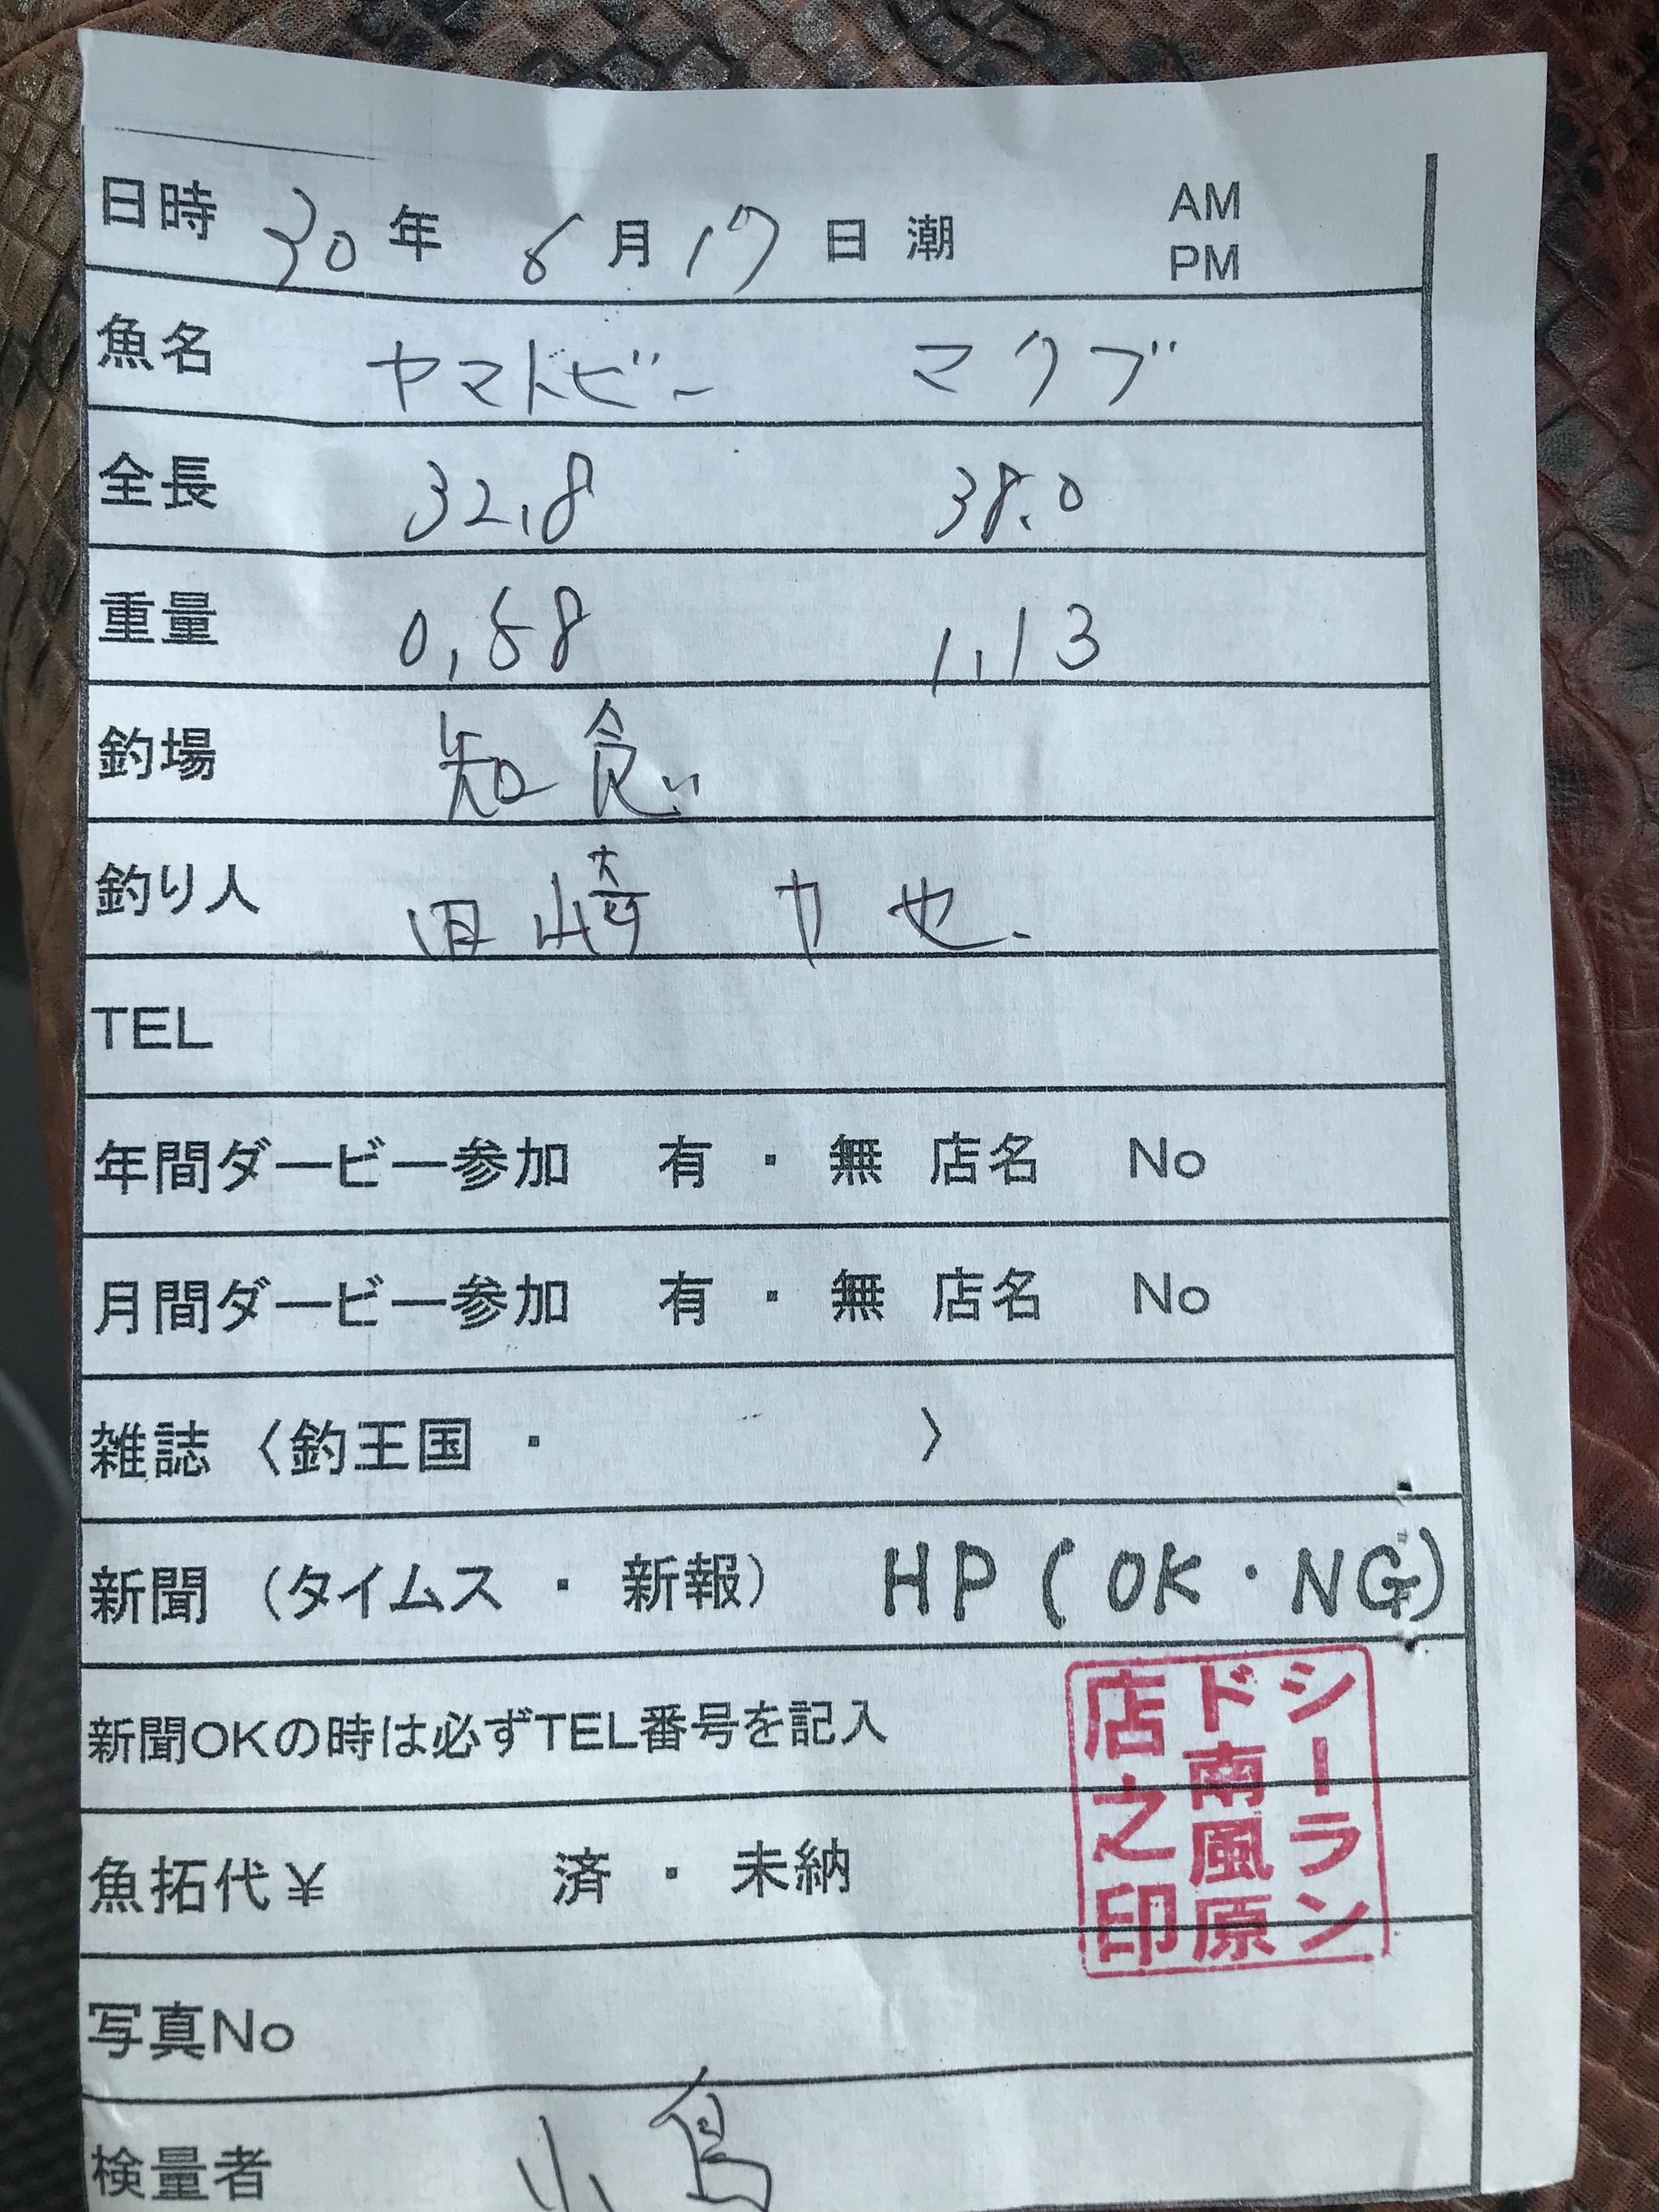 日時 30年 6月17日 潮 AM PM
魚名 ヤマトビー マクブ
全長 32.8 38.0
重量 0.58 1.13
釣場 知念
釣り人 田﨑 力也
TEL
年間ダービー参加 有・無 店名 No
月間ダービー参加 有・無 店名 No
雑誌〈釣王国・ 〉
新聞(タイムス・新報) HP(OK・NG)
新聞OKの時は必ずTEL番号を記入
魚拓代¥ 済・未納
写真No
検量者 小島
シーラン
ド南風原
店之印